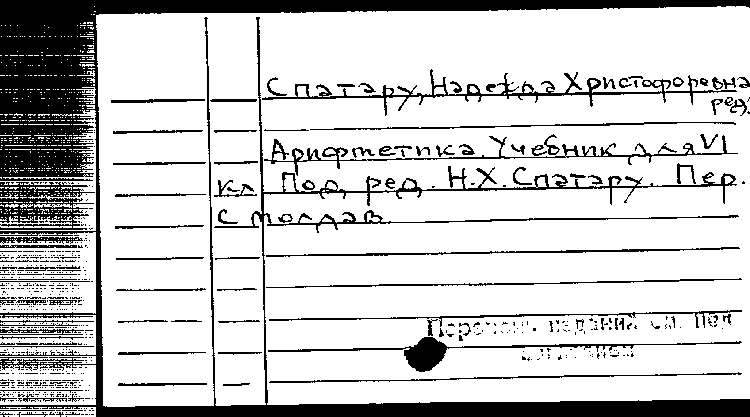 Спатару, Надежда Христофоровна
ред.
Арифметика. Учебник для VI
кл. Под ред. Н.Х. Спатару. Пер.
с молдав.
Перечень изданий см. под
заглавием